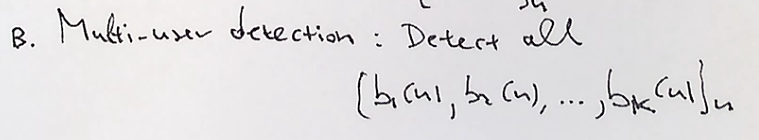 B. Multi-user detection : Detect all
{b₁(n), b₂(n), ..., bₖ(n)}ₙ